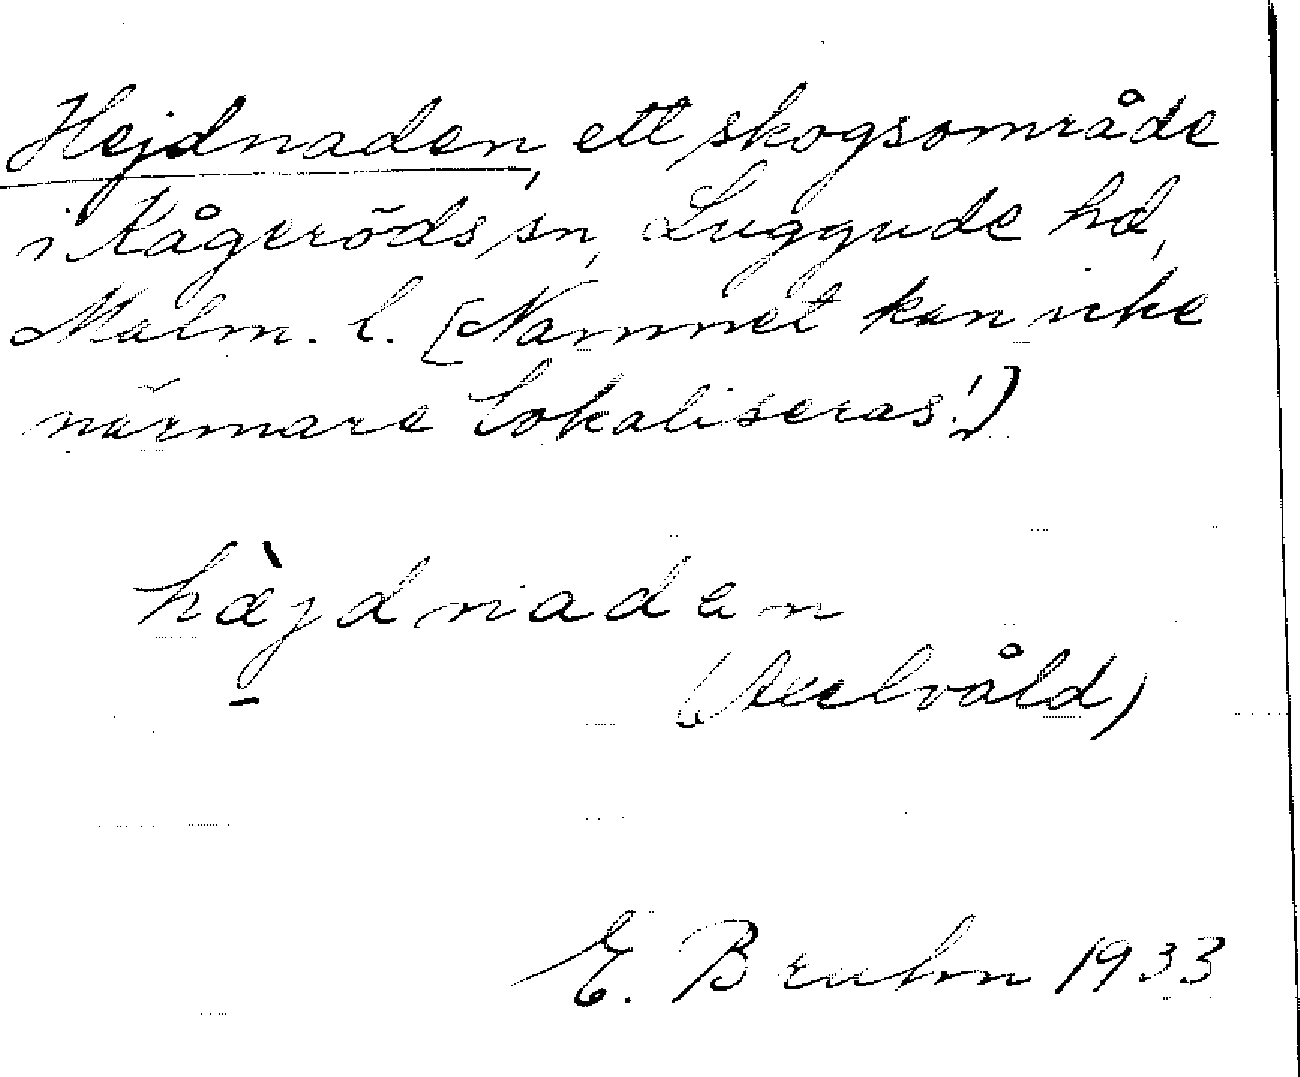 Hejdnaden, ett skogsområde
i Kågeröds sn, Luggude hd,
Malm. l. (Namnet kan icke
närmare lokaliseras!)
hæ̀jdnaden
E. Bruhn 1933